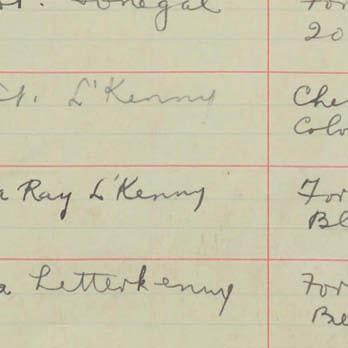 Donegal
For
20
Ct. L'Kenny
Che
Colo
a Ray L'Kenny
For
Bl
a Letterkenny
For
Be